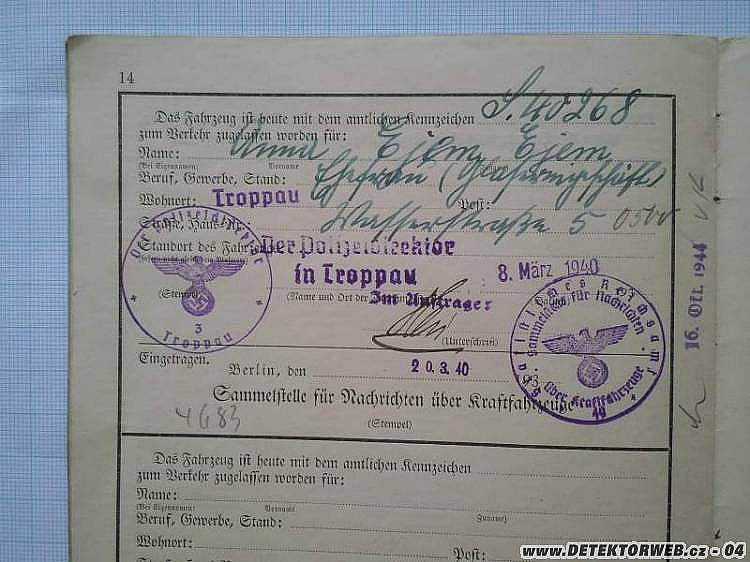 14
Das Fahrzeug ist heute mit dem amtlichen Kennzeichen S. 40268
zum Verkehr zugelassen worden für:
Name: Anna Ejem Ejem
(Bei Eigennamen) Vorname
Beruf, Gewerbe, Stand: Ehefrau (Glasereigeschäft)
Wohnort: Troppau Post:
Straße, Haus-Nr. Wasserstraße 5
Standort des Fahrzeugs
Der Polizeidirektor
in Troppau
8. März 1940
(Stempel) (Name und Ort der
Im Auftrage:
(Unterschrift)
Der Polizeidirektor
3
Troppau
Statistisches Reichsamt
Sammelstelle für Nachrichten
über Kraftfahrzeuge
49
16. Okt. 1944
Eingetragen. Berlin, den 20.3.40
Sammelstelle für Nachrichten über Kraftfahrzeuge
4683 (Stempel)
Das Fahrzeug ist heute mit dem amtlichen Kennzeichen
zum Verkehr zugelassen worden für:
Name:
(Bei Eigennamen) Vorname
Beruf, Gewerbe, Stand: Zuname)
Wohnort:
Post:
www.DETEKTORWEB.cz - 04